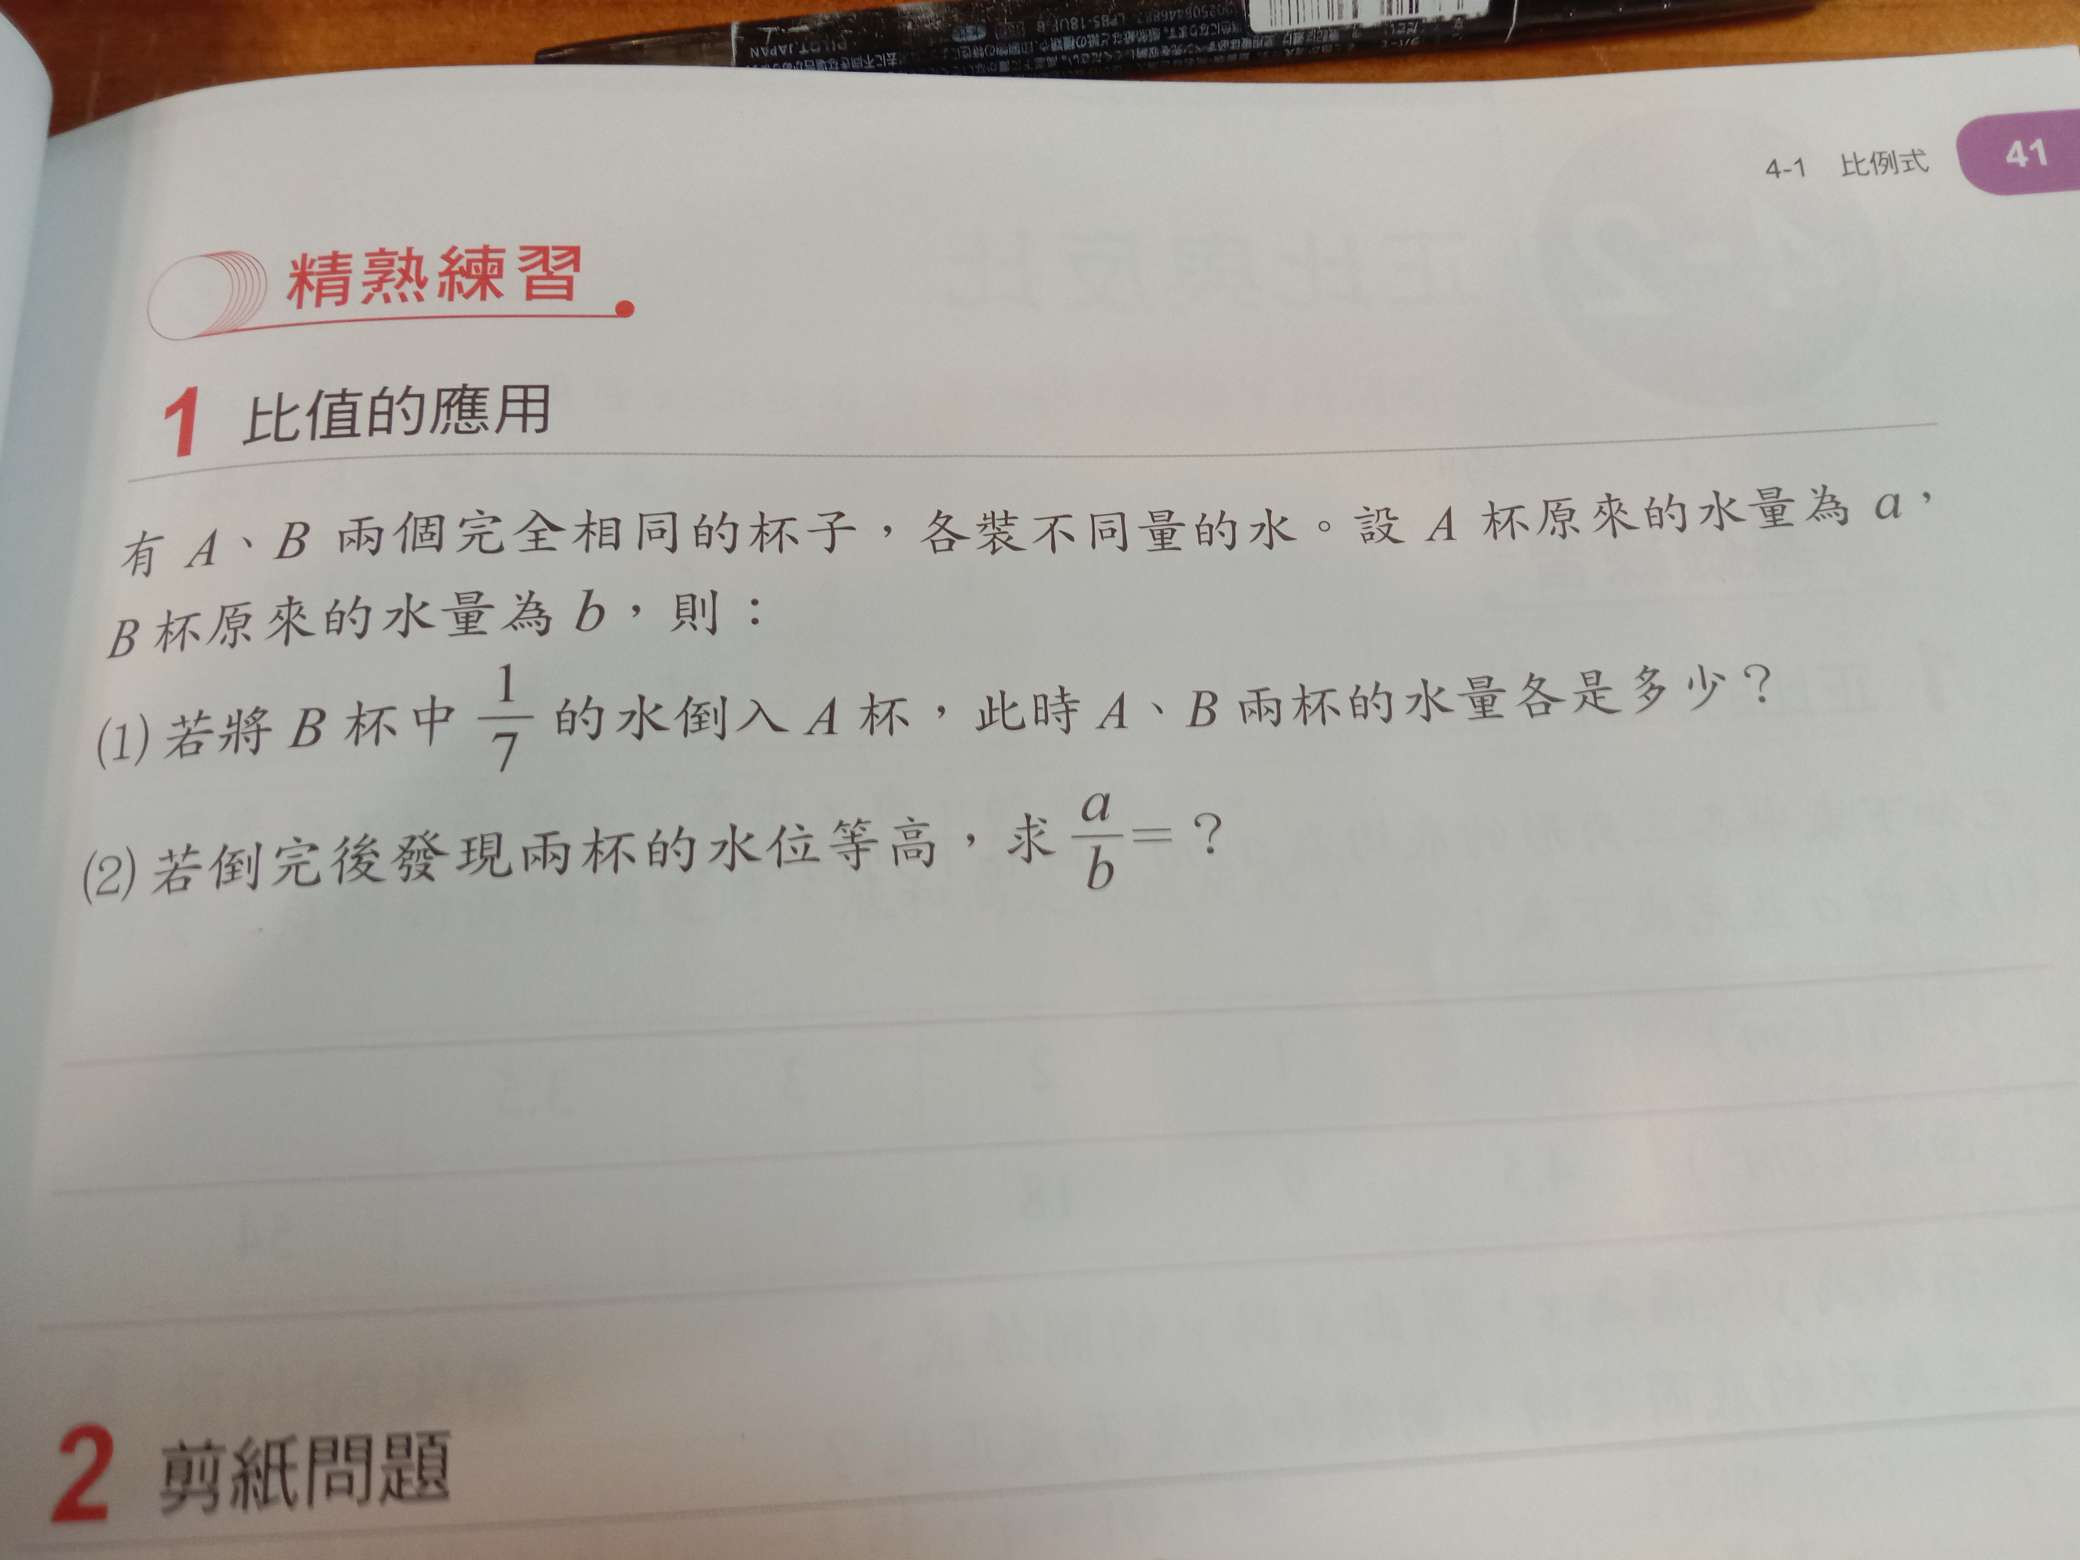 PILOT, JAPAN
4-1 比例式 41
精熟練習
1 比值的應用
有 A、B 兩個完全相同的杯子，各裝不同量的水。設 A 杯原來的水量為 a，
B 杯原來的水量為 b，則：
(1) 若將 B 杯中 1/7 的水倒入 A 杯，此時 A、B 兩杯的水量各是多少？
(2) 若倒完後發現兩杯的水位等高，求 a/b = ？
2 剪紙問題